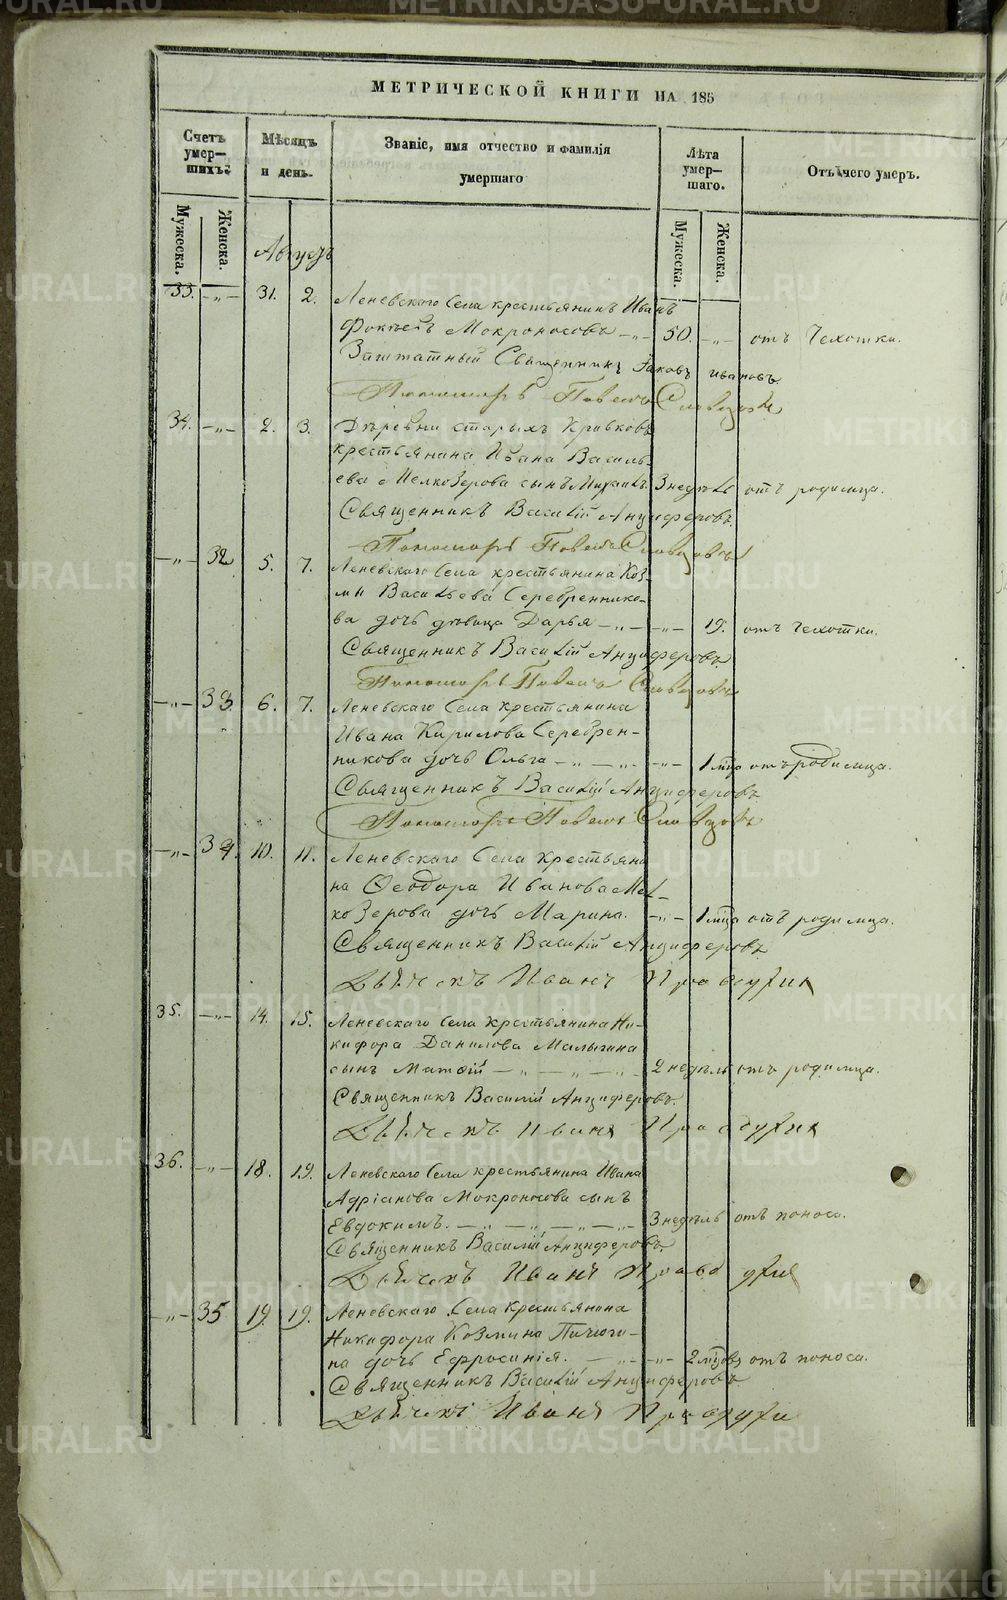 МЕТРИЧЕСКОЙ КНИГИ НА 185
Счетъ умер— шихъ.
Мѣсяцъ и день.
Званіе, имя отчество и фамилія умершаго
Лѣта умер— шаго.
Отъ чего умеръ.
Мужеска.
Женска.
Мужеска.
Женска.
Августъ
33. —„— 31. 2. Леневскаго Села крестьянинъ Иванъ
Мокроносовъ —„— 50. —„— отъ Чехотки.
Заштатный Священникъ Іаковъ Ивановъ
Пономарь Павелъ Словцовъ
34. —„— 2. 3. Деревни старыхъ Кривковъ
крестьянина Ивана Василь-
ева Мелкозерова сынъ Михаилъ. 3 недѣль отъ родимца.
Священникъ Василій Анциферовъ.
Пономарь Павелъ Словцовъ
—„— 32 5. 7. Леневскаго Села крестьянина Коз-
мы Васильева Серебреннико-
ва дочь дѣвица Дарья —„— —„— 19. отъ чехотки.
Священникъ Василій Анциферовъ
Пономарь Павелъ Словцовъ
—„— 33. 6. 7. Леневскаго Села крестьянина
Ивана Кирилова Серебрен-
никова дочь Ольга —„— —„— —„— 1 мѣца отъ родимца.
Священникъ Василій Анциферовъ
Пономарь Павелъ Словцовъ
—„— 34. 10. 11. Леневскаго Села крестьяни
на Ѳеодора Иванова Мел-
козерова дочь Марина. —„— 1 мѣца отъ родимца.
Священникъ Василій Анциферовъ
Дьячекъ Иванъ
35. —„— 14. 15. Леневскаго Села крестьянина Ни-
кифора Данилова Малыгина
сынъ Матѳій —„— —„— —„— 2 недѣль отъ родимца.
Священникъ Василій Анциферовъ.
Дьячекъ Иванъ
36. —„— 18. 19. Леневскаго Села крестьянина Ивана
Адріанова Мокроносова сынъ
Евдокимъ. —„— —„— —„— 3 недѣль отъ поноса.
Священникъ Василій Анциферовъ
Дьячекъ Иванъ
—„— 35 19. 19. Леневскаго Села крестьянина
Никифора Козмина Пичюги-
на дочь Ефросинія. —„— —„— 2 мѣцовъ отъ поноса.
Священникъ Василій Анциферовъ
Дьячекъ Иванъ
METRIKI.GASO-URAL.RU